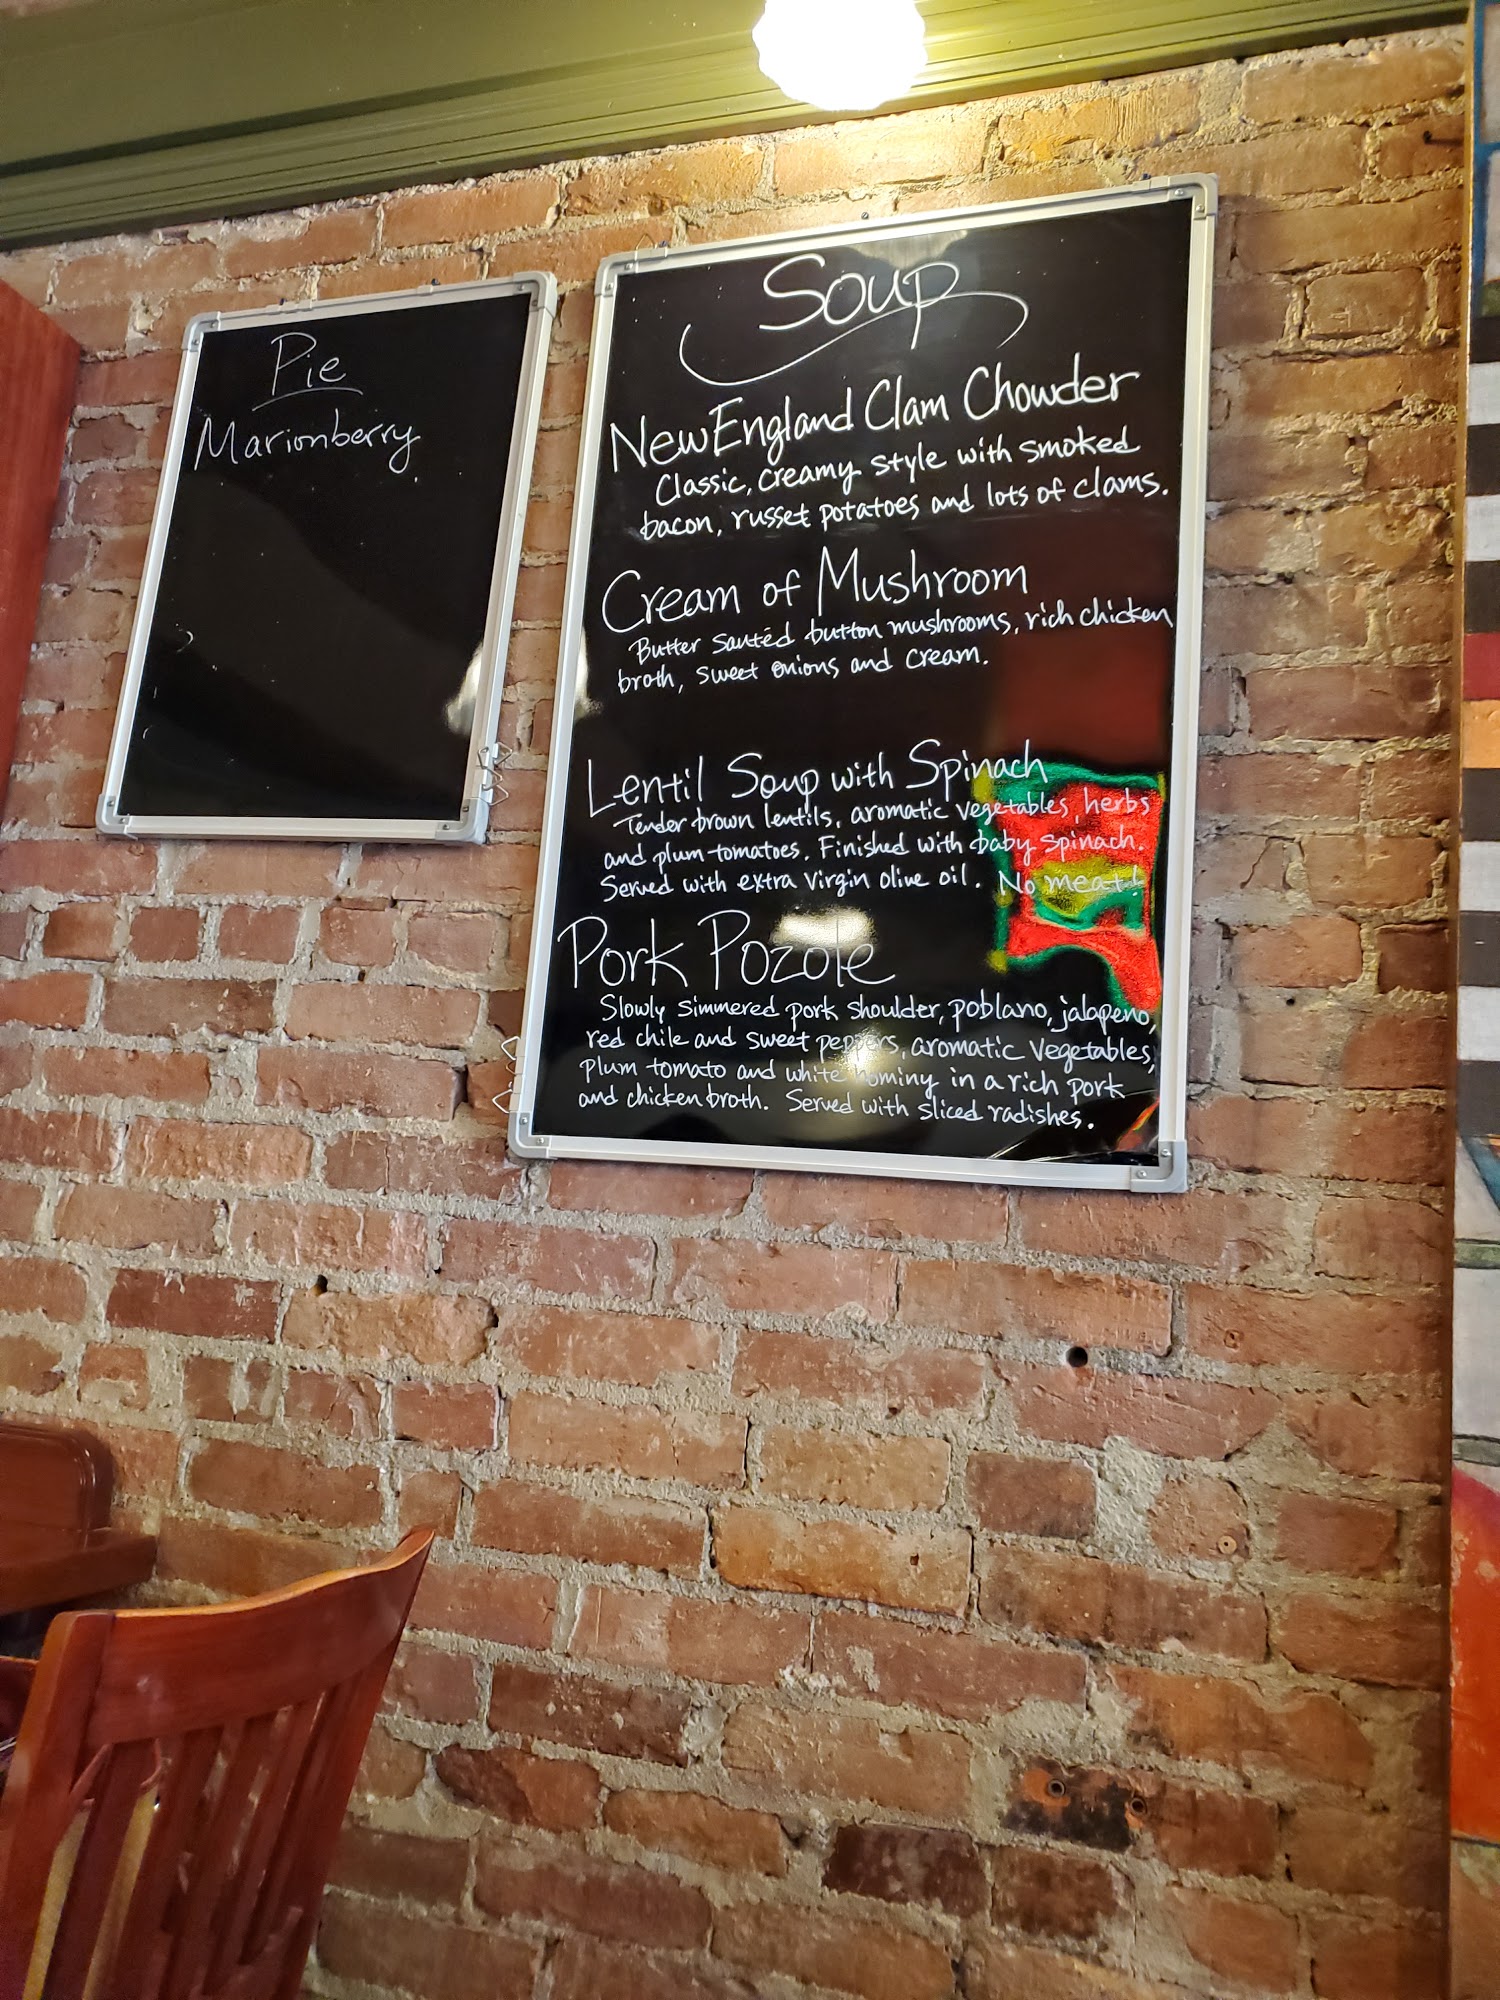 Pie
Marionberry
Soup
New England Clam Chowder
Classic, creamy style with smoked
bacon, russet potatoes and lots of clams.
Cream of Mushroom
Butter Sautéd button mushrooms, rich chicken
broth, sweet onions and cream.
Lentil Soup with Spinach
Tender brown lentils, aromatic vegetables, herbs
and plum tomatoes. Finished with baby spinach.
Served with extra virgin olive oil. No meat!
Pork Pozole
Slowly simmered pork shoulder, poblano, jalapeno,
red chile and sweet peppers, aromatic vegetables,
plum tomato and white hominy in a rich pork
and chicken broth. Served with sliced radishes.